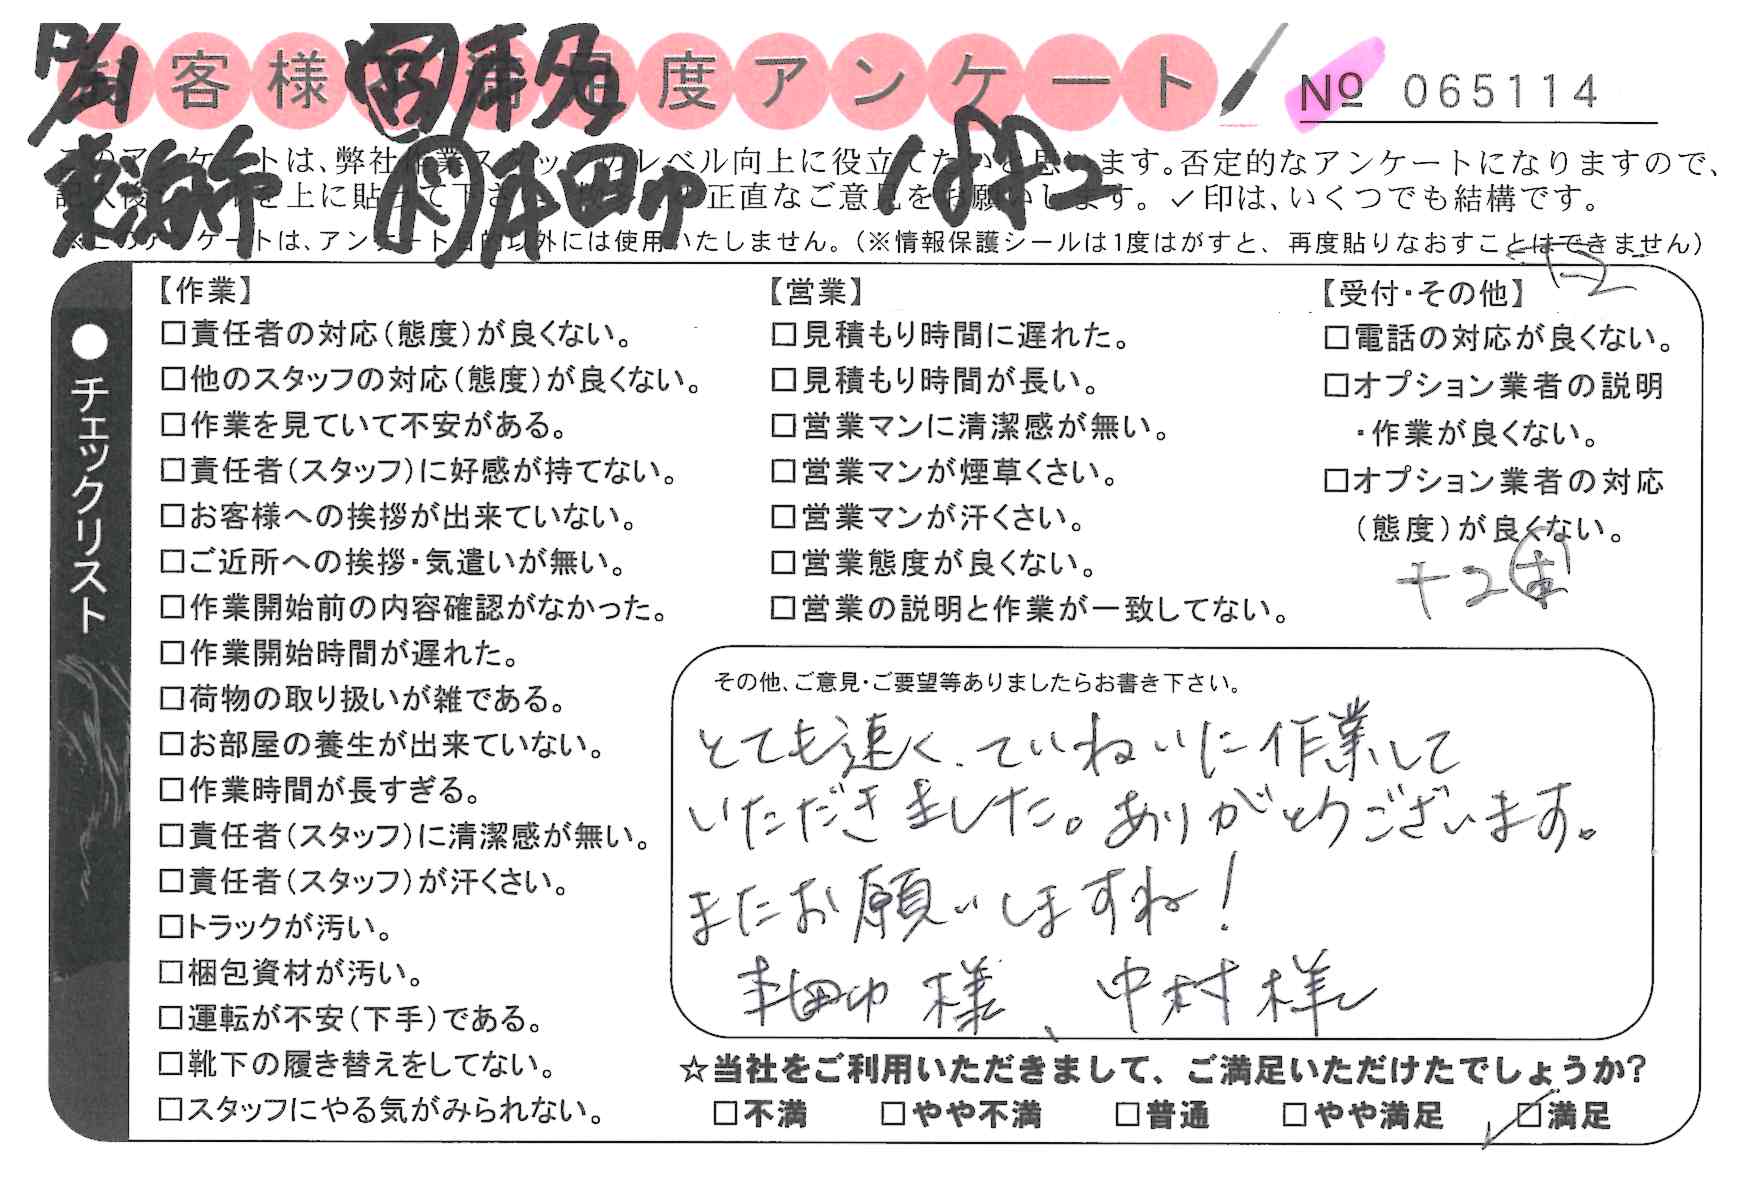 お客様満足度アンケート
№ 065114
このアンケートは、弊社作業スタッフのレベル向上に役立てたいと思います。否定的なアンケートになりますので、
を上に貼って下さい 正直なご意見をお願いします。✓印は、いくつでも結構です。
※このアンケートは、アンケート目的以外には使用いたしません。(※情報保護シールは1度はがすと、再度貼りなおすことはできません)
●チェックリスト
【作業】
□責任者の対応(態度)が良くない。
□他のスタッフの対応(態度)が良くない。
□作業を見ていて不安がある。
□責任者(スタッフ)に好感が持てない。
□お客様への挨拶が出来ていない。
□ご近所への挨拶・気遣いが無い。
□作業開始前の内容確認がなかった。
□作業開始時間が遅れた。
□荷物の取り扱いが雑である。
□お部屋の養生が出来ていない。
□作業時間が長すぎる。
□責任者(スタッフ)に清潔感が無い。
□責任者(スタッフ)が汗くさい。
□トラックが汚い。
□梱包資材が汚い。
□運転が不安(下手)である。
□靴下の履き替えをしてない。
□スタッフにやる気がみられない。
【営業】
□見積もり時間に遅れた。
□見積もり時間が長い。
□営業マンに清潔感が無い。
□営業マンが煙草くさい。
□営業マンが汗くさい。
□営業態度が良くない。
□営業の説明と作業が一致してない。
【受付・その他】
□電話の対応が良くない。
□オプション業者の説明
・作業が良くない。
□オプション業者の対応
(態度)が良くない。
+2
その他、ご意見・ご要望等ありましたらお書き下さい。
とても速く、ていねいに作業して
いただきました。ありがとうございます。
またお願いしますね!
様、中村様
☆当社をご利用いただきまして、ご満足いただけたでしょうか?
□不満 □やや不満 □普通 □やや満足 □満足